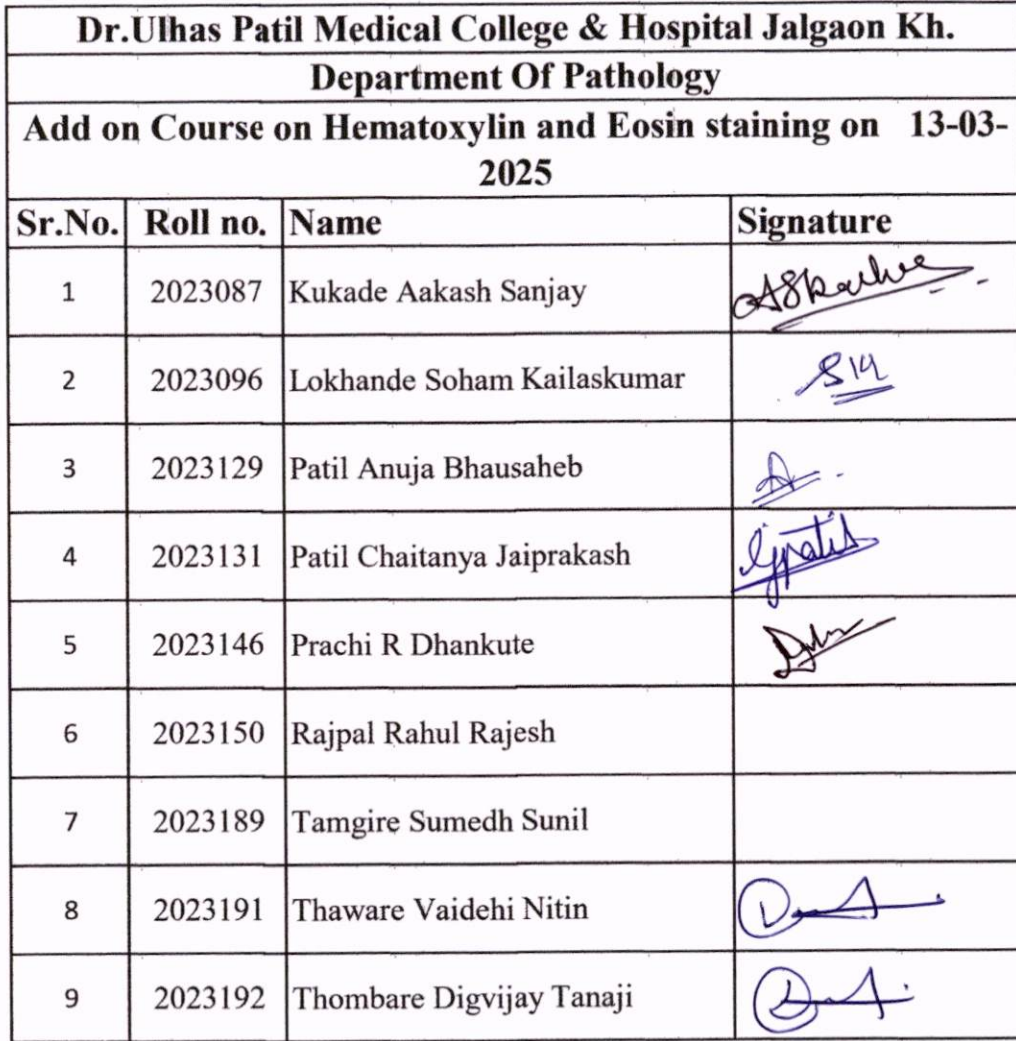 Dr.Ulhas Patil Medical College & Hospital Jalgaon Kh.
Department Of Pathology
Add on Course on Hematoxylin and Eosin staining on 13-03-
2025
Sr.No. Roll no. Name Signature
1 2023087 Kukade Aakash Sanjay
2 2023096 Lokhande Soham Kailaskumar
3 2023129 Patil Anuja Bhausaheb
4 2023131 Patil Chaitanya Jaiprakash
5 2023146 Prachi R Dhankute
6 2023150 Rajpal Rahul Rajesh
7 2023189 Tamgire Sumedh Sunil
8 2023191 Thaware Vaidehi Nitin
9 2023192 Thombare Digvijay Tanaji